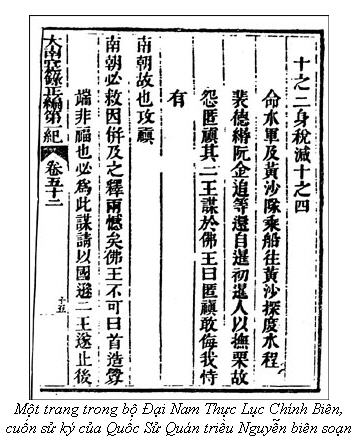 十之二身稅減十之四
命水軍及黃沙隊乘船往黃沙探度水程
裴德縉阮企追等還自暹初暹人以撫栗故
怨匿禛其二王謀於佛王曰匿禛敢侮我恃
有
南朝故也攻禛
南朝必救因併及之釋兩憾矣佛王不可曰首造釁
端非福也必為此謀請以國避二王遂止後
大南寔錄正編第一紀 卷五十二 十五
Một trang trong bộ Đại Nam Thực Lục Chính Biên,
cuốn sử ký của Quốc Sử Quán triều Nguyễn biên soạn